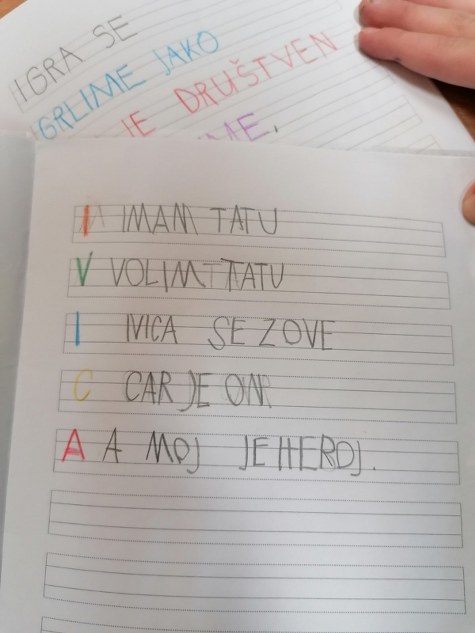 IGRA SE
GRLI ME JAKO
JE DRUŠTVEN
ME.
I IMAM TATU
V VOLIM TATU
I IVICA SE ZOVE
C CAR JE ON
A A MOJ JE HEROJ.